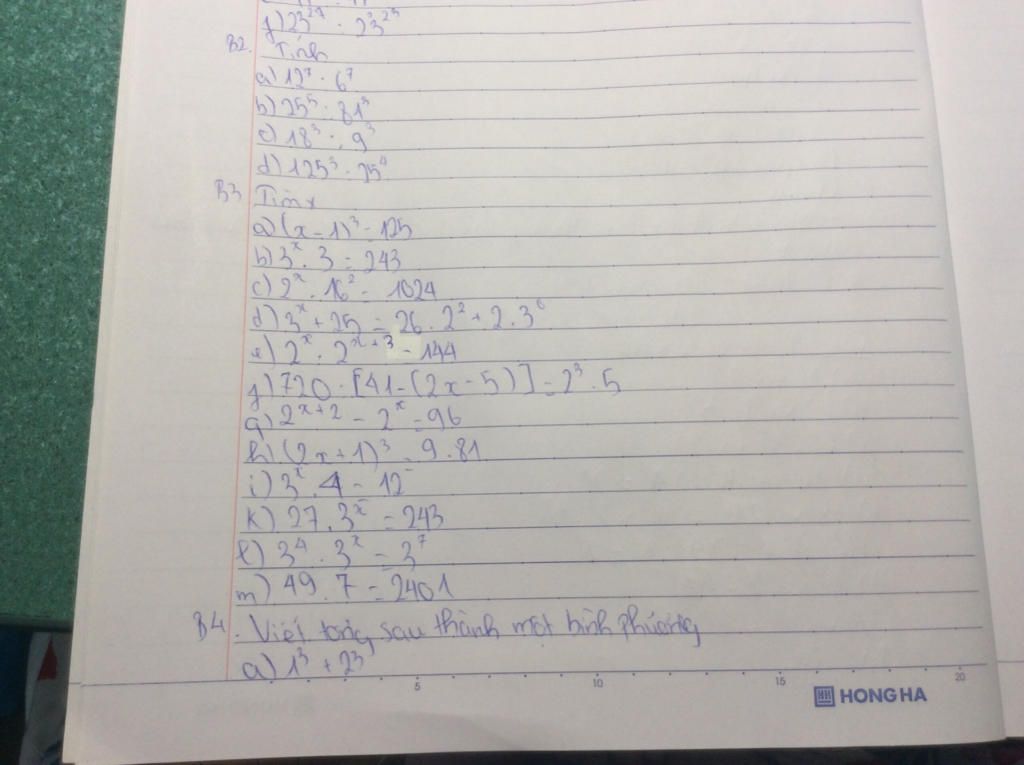 f) 23²⁷ : 23²³
B2. Tính
a) 12⁷ : 6⁷
b) 25⁵ : 81³
c) 18³ : 9³
d) 125³ : 25⁴
B3 Tìm x
a) (x - 1)³ = 125
b) 3ˣ . 3 = 243
c) 2ˣ . 16² = 1024
d) 3ˣ + 25 = 26 . 2² + 2 . 3⁰
e) 2ˣ . 2ˣ⁺³ = 144
f) 720 : [41 - (2x - 5)] = 2³ . 5
g) 2ˣ⁺² - 2ˣ = 96
h) (2x + 1)³ = 9 . 81
i) 3ˣ . 4 = 12
k) 27 . 3ˣ = 243
l) 3⁴ . 3ˣ = 3⁷
m) 49 . 7 = 2401
B4. Viết tổng sau thành một bình phương
a) 1³ + 2³
5 10 15 20
HH HONG HA